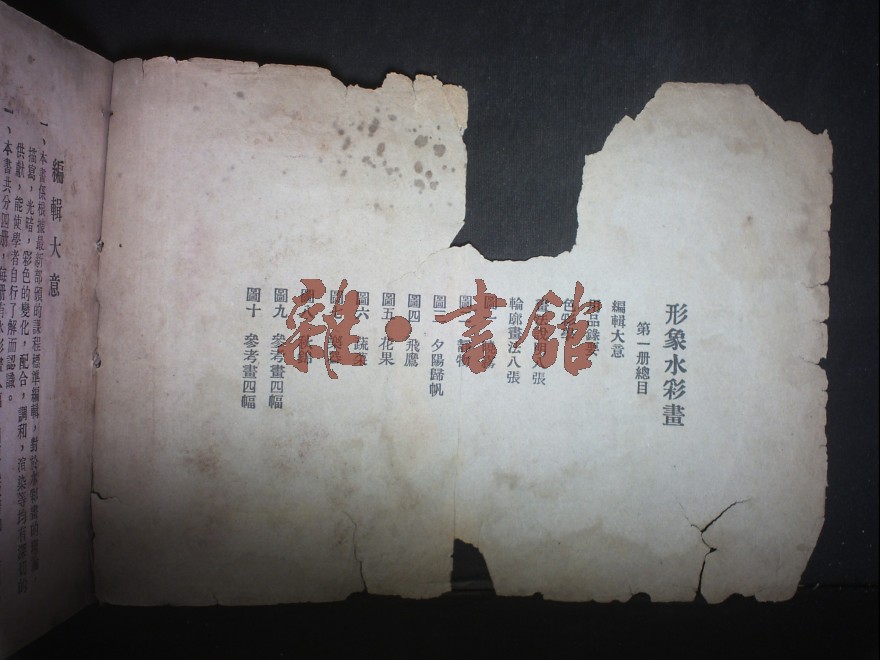 形象水彩畫
第一册總目
編輯大意
用品錄要
輪廓畫法八張
圖三 夕陽歸帆
圖四 飛鷹
圖五 花果
圖六 蔬菜
圖九 參考畫四幅
圖十 參考畫四幅
編輯大意
一、本書係根據最新部頒的課程標準編輯，對於水彩畫的理論，
描寫，光暗，彩色的變化，配合，調和，渲染等均有深切的
供獻，能使學者自行了解而認識。
一、本書共分四册，每册有水彩畫
雜·書館